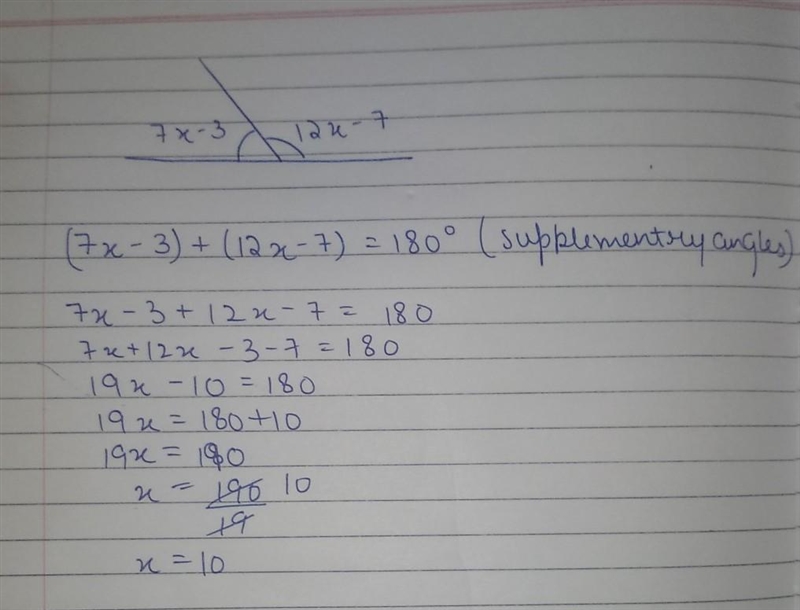 7x-3 12x-7
(7x-3)+(12x-7) = 180° (supplementry angles)
7x-3+12x-7 = 180
7x+12x-3-7=180
19x-10=180
19x=180+10
19x=190
x = 190/19 10
x=10